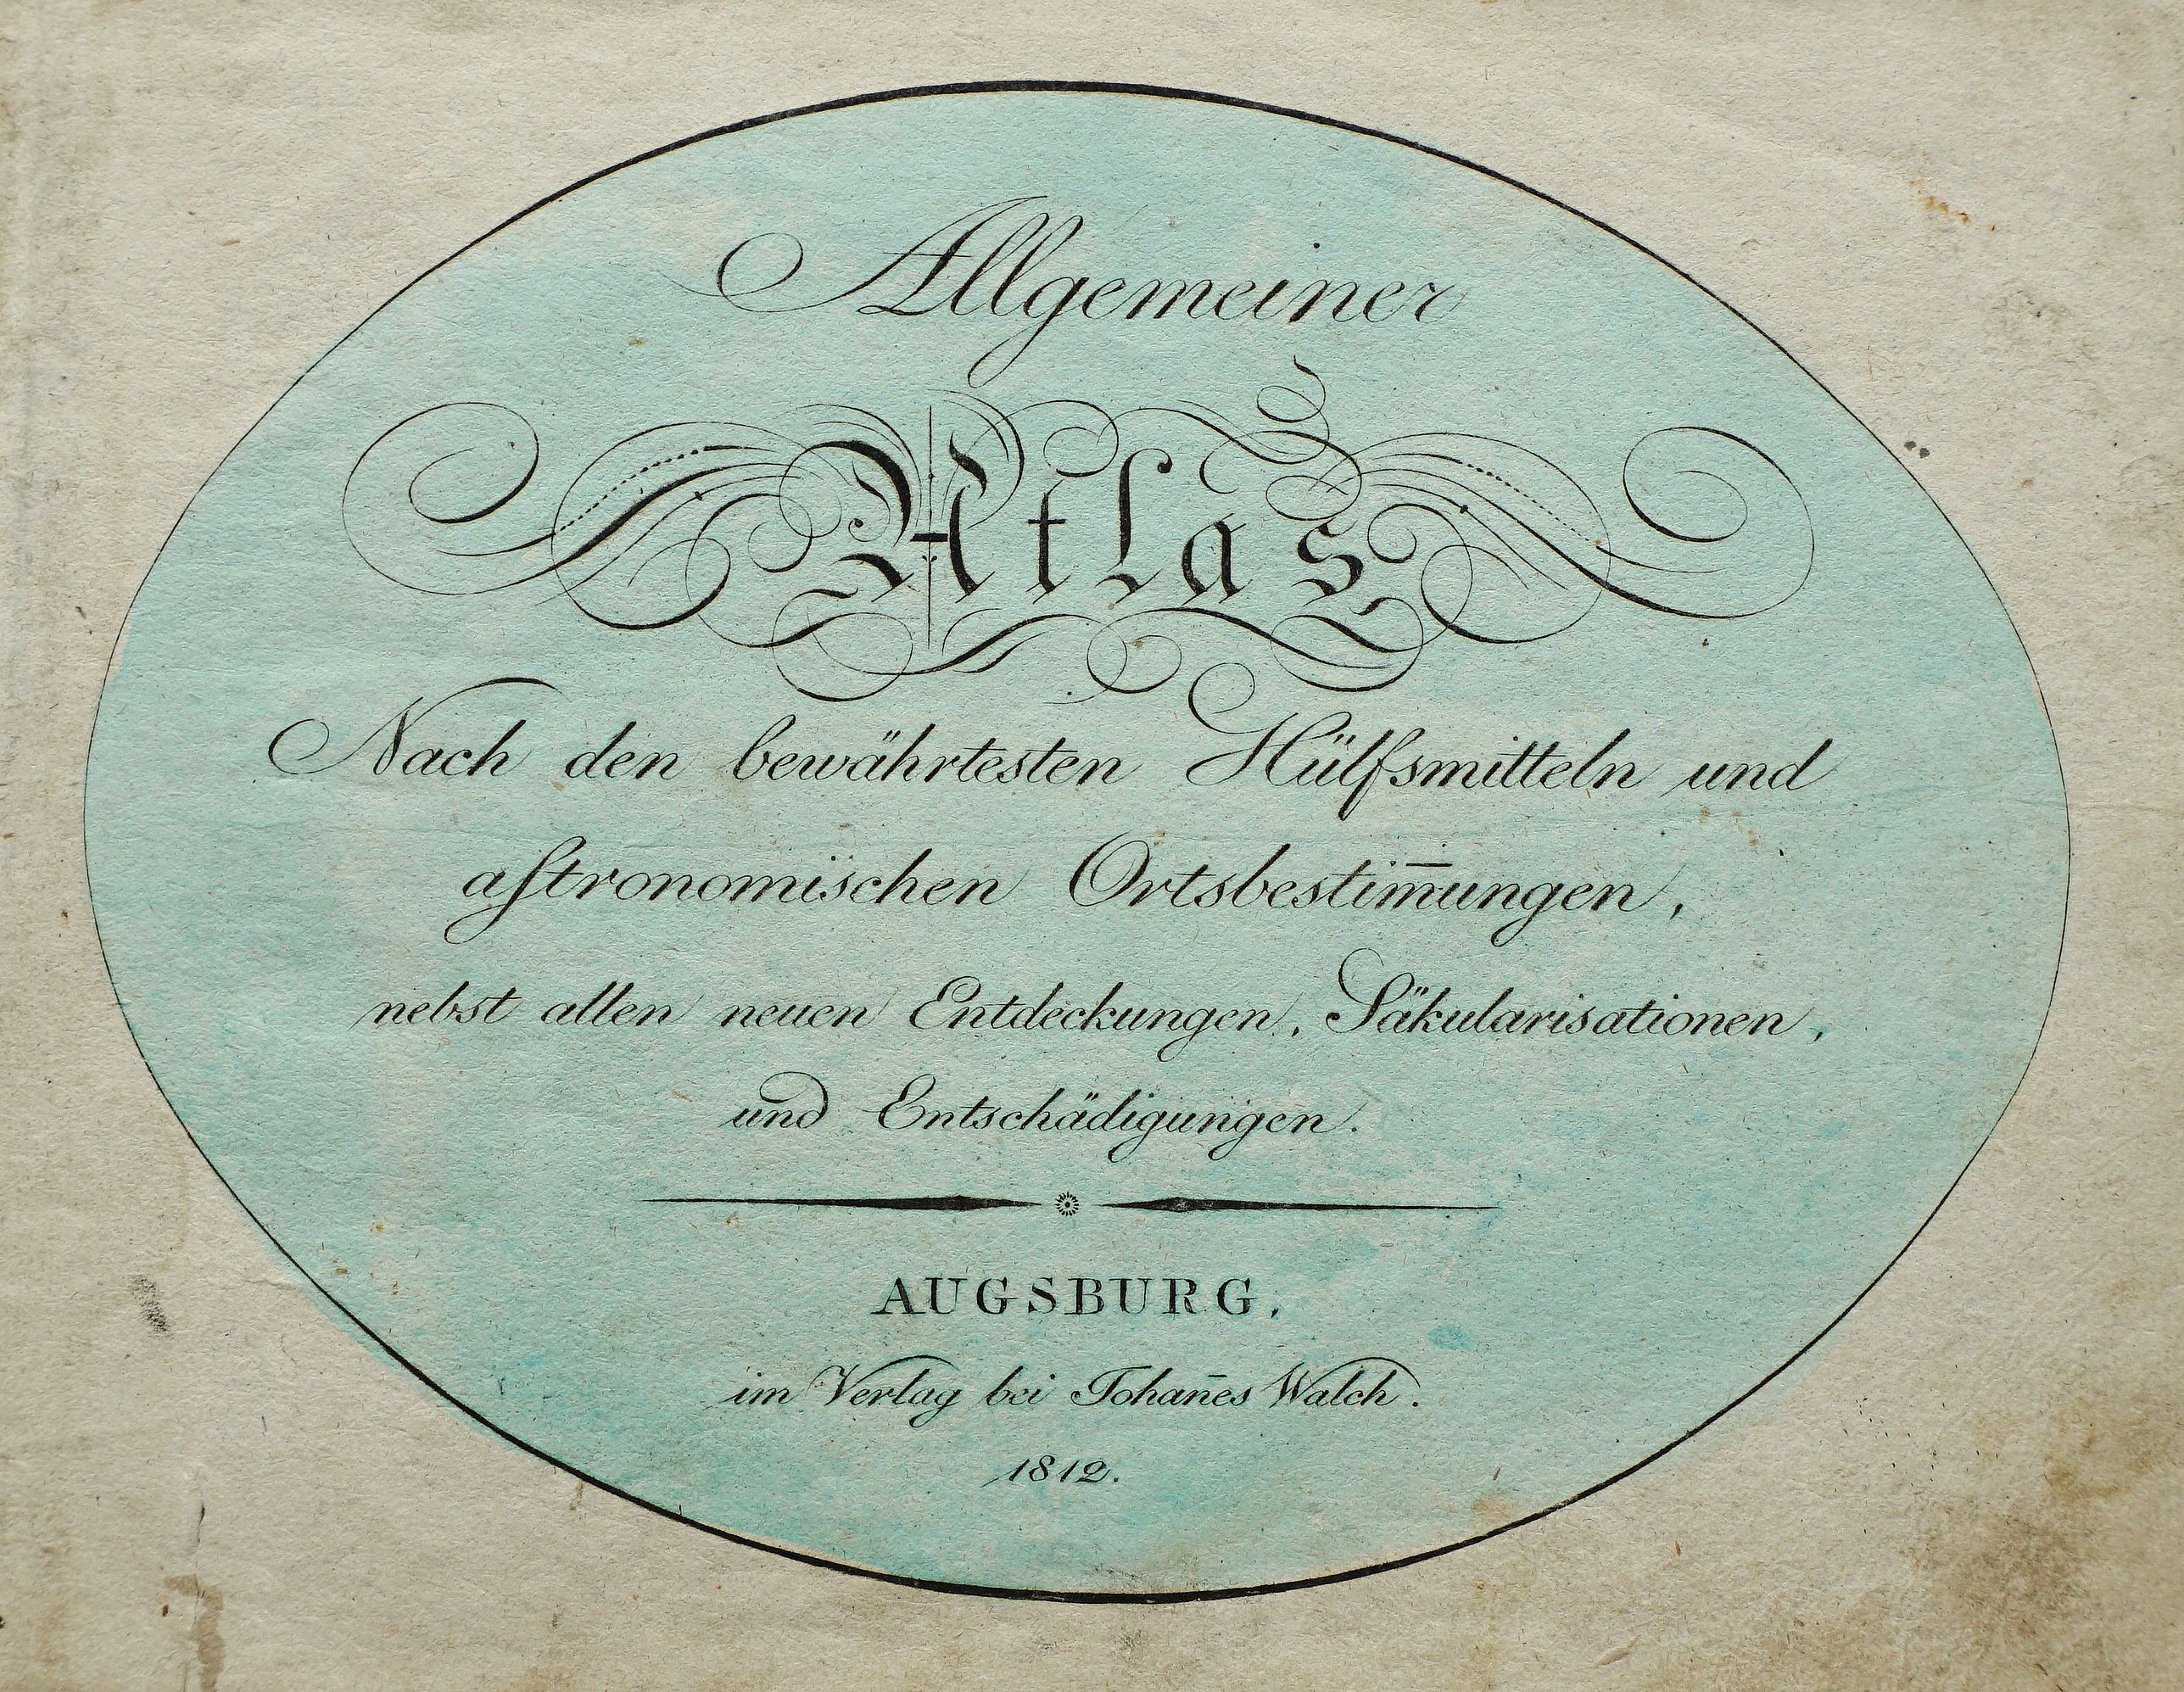 Allgemeiner
Atlas
Nach den bewährtesten Hülfsmitteln und
aſtronomischen Ortsbestim̅ungen,
nebst allen neuen Entdeckungen, Säkularisationen,
und Entschädigungen.
AUGSBURG,
im Verlag bei Johan̅es Walch.
1812.